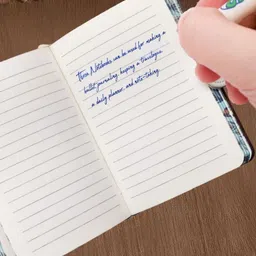 These Notebooks can be used for making a
bullet journaling, keeping a travelogue
a daily planner, and note-taking.